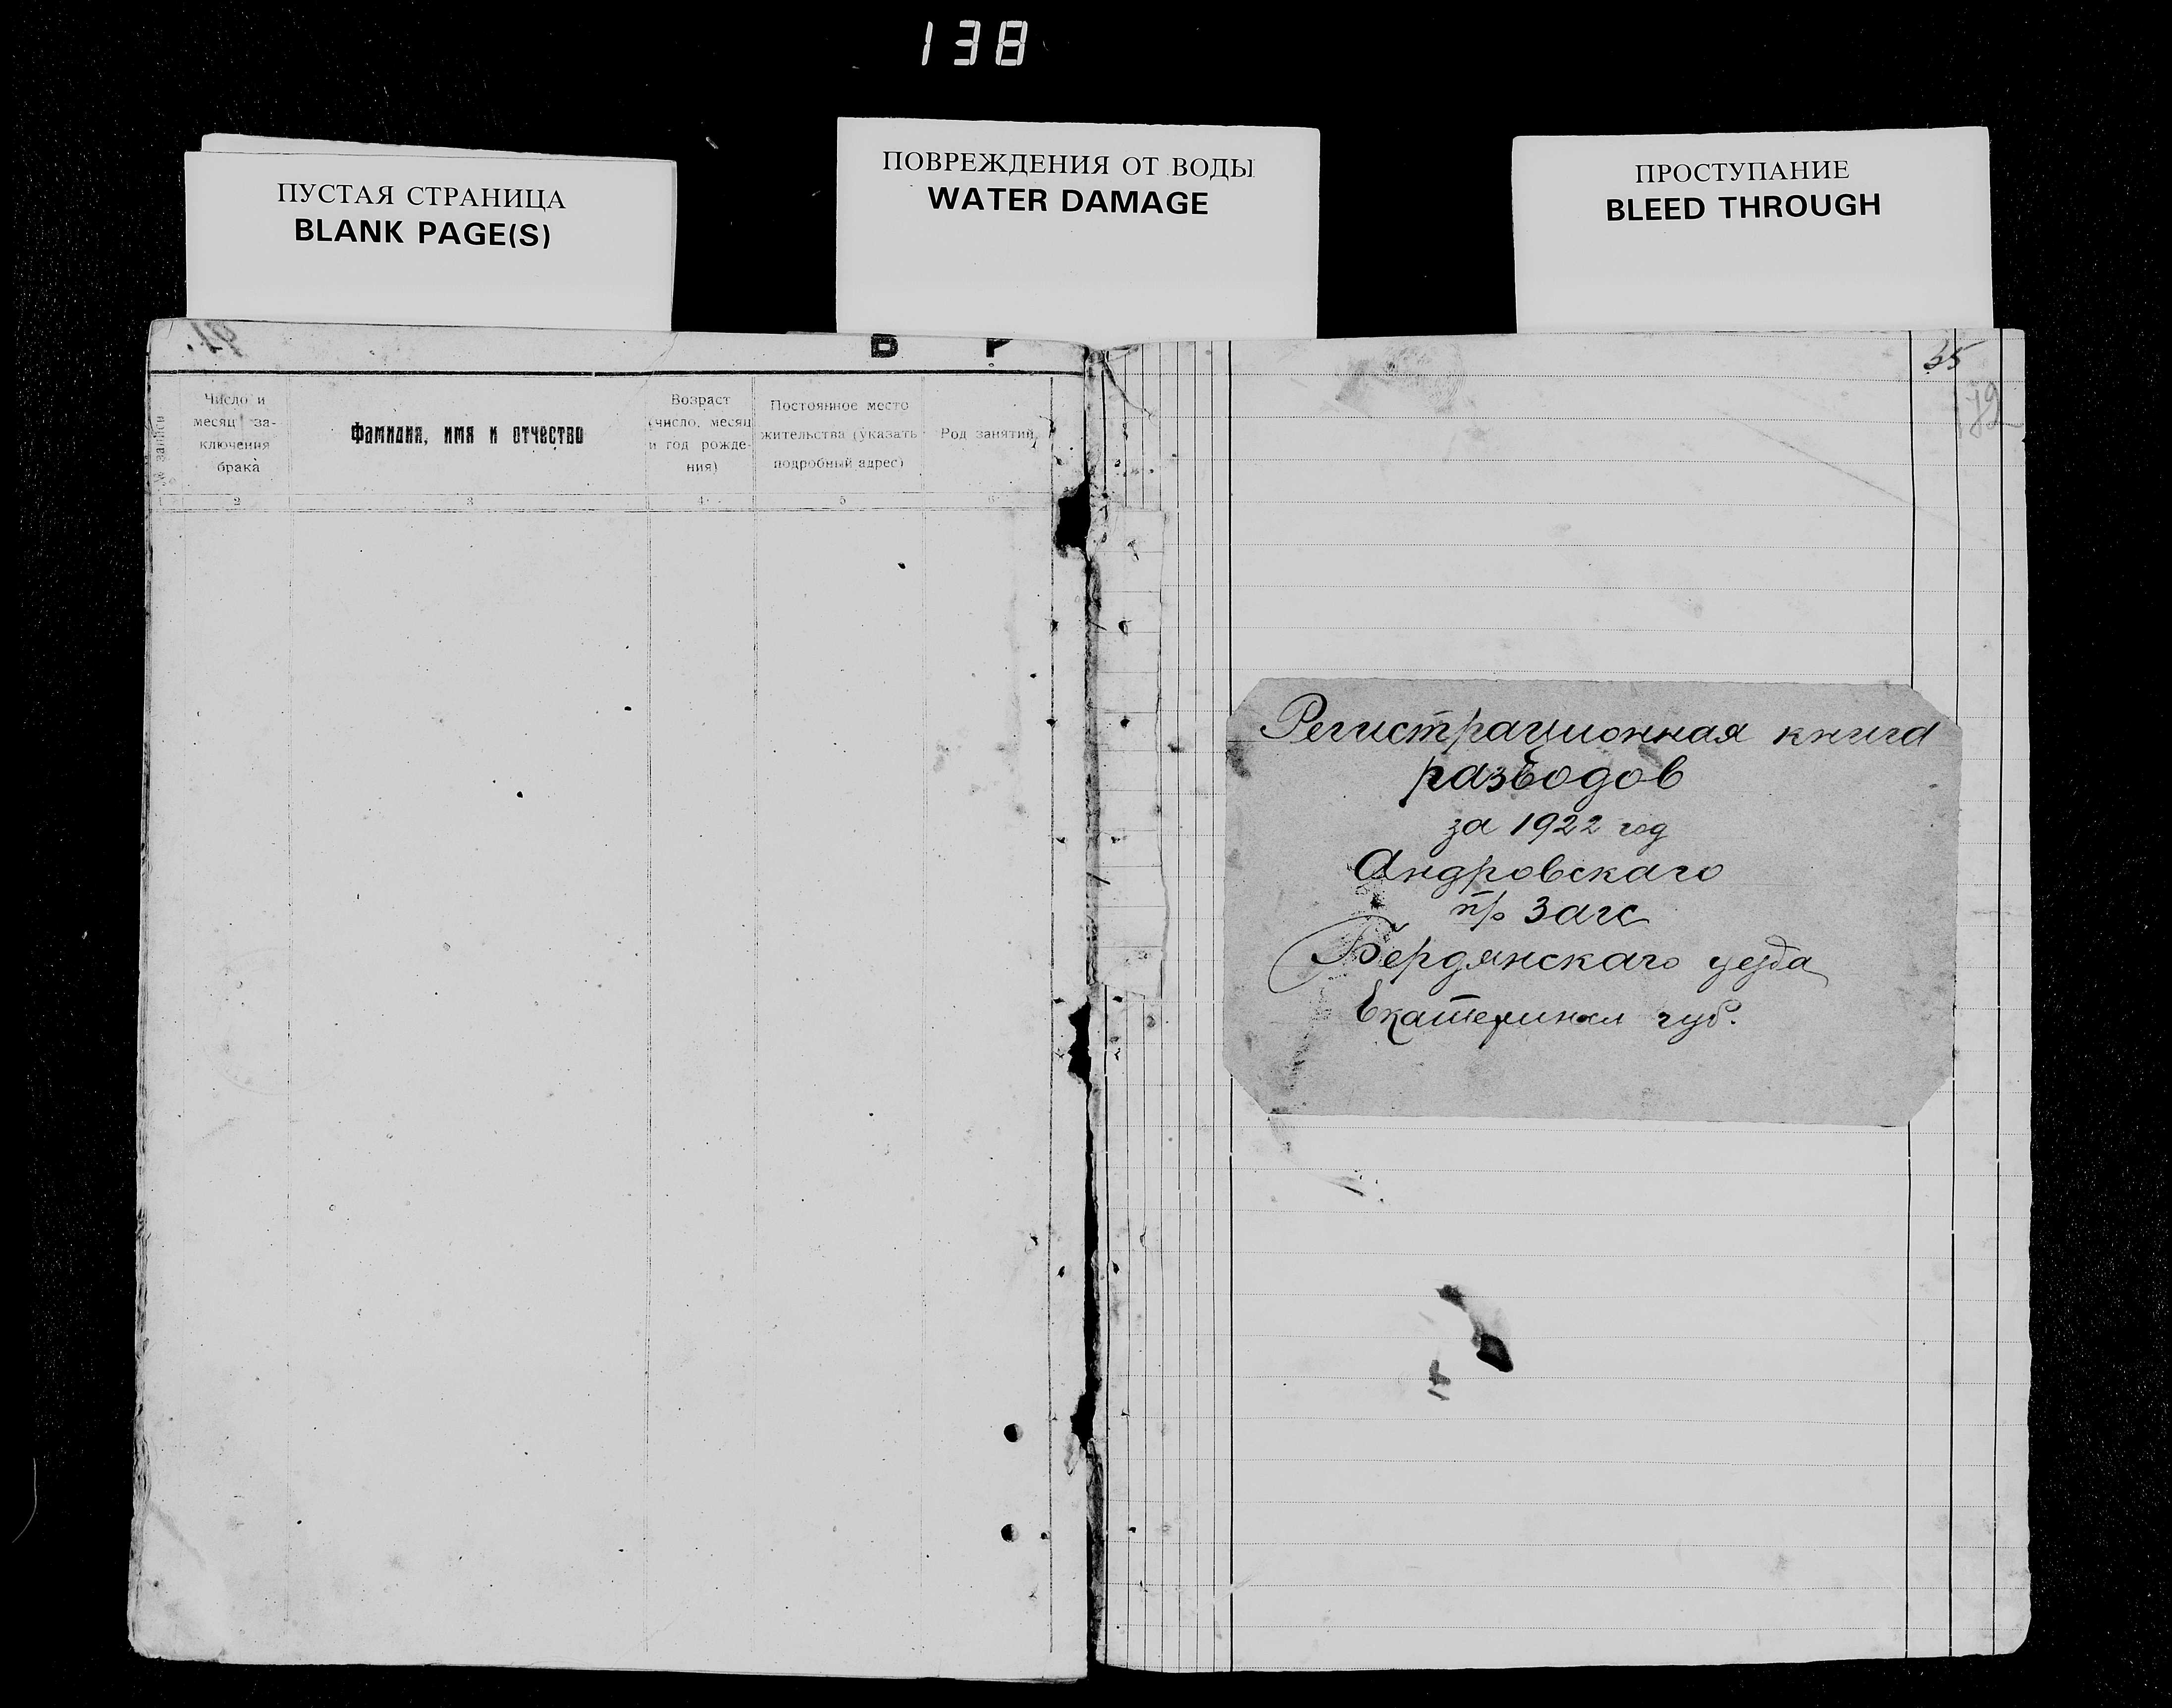 138
ПУСТАЯ СТРАНИЦА
BLANK PAGE(S)
ПОВРЕЖДЕНИЯ ОТ ВОДЫ
WATER DAMAGE
ПРОСТУПАНИЕ
BLEED THROUGH
Б Р
№ записи
Число и
месяц за-
ключения
брака
Фамилия, имя и отчество
Возраст
(число, месяц
и год рожде-
ния)
Постоянное место
жительства (указать
подробный адрес)
Род занятий
2 3 4 5 6
35
Регистрационная книга
разводов
за 1922 год
Андровскаго
п/о Загс
Бердянскаго уезда
Екатеринсл губ.